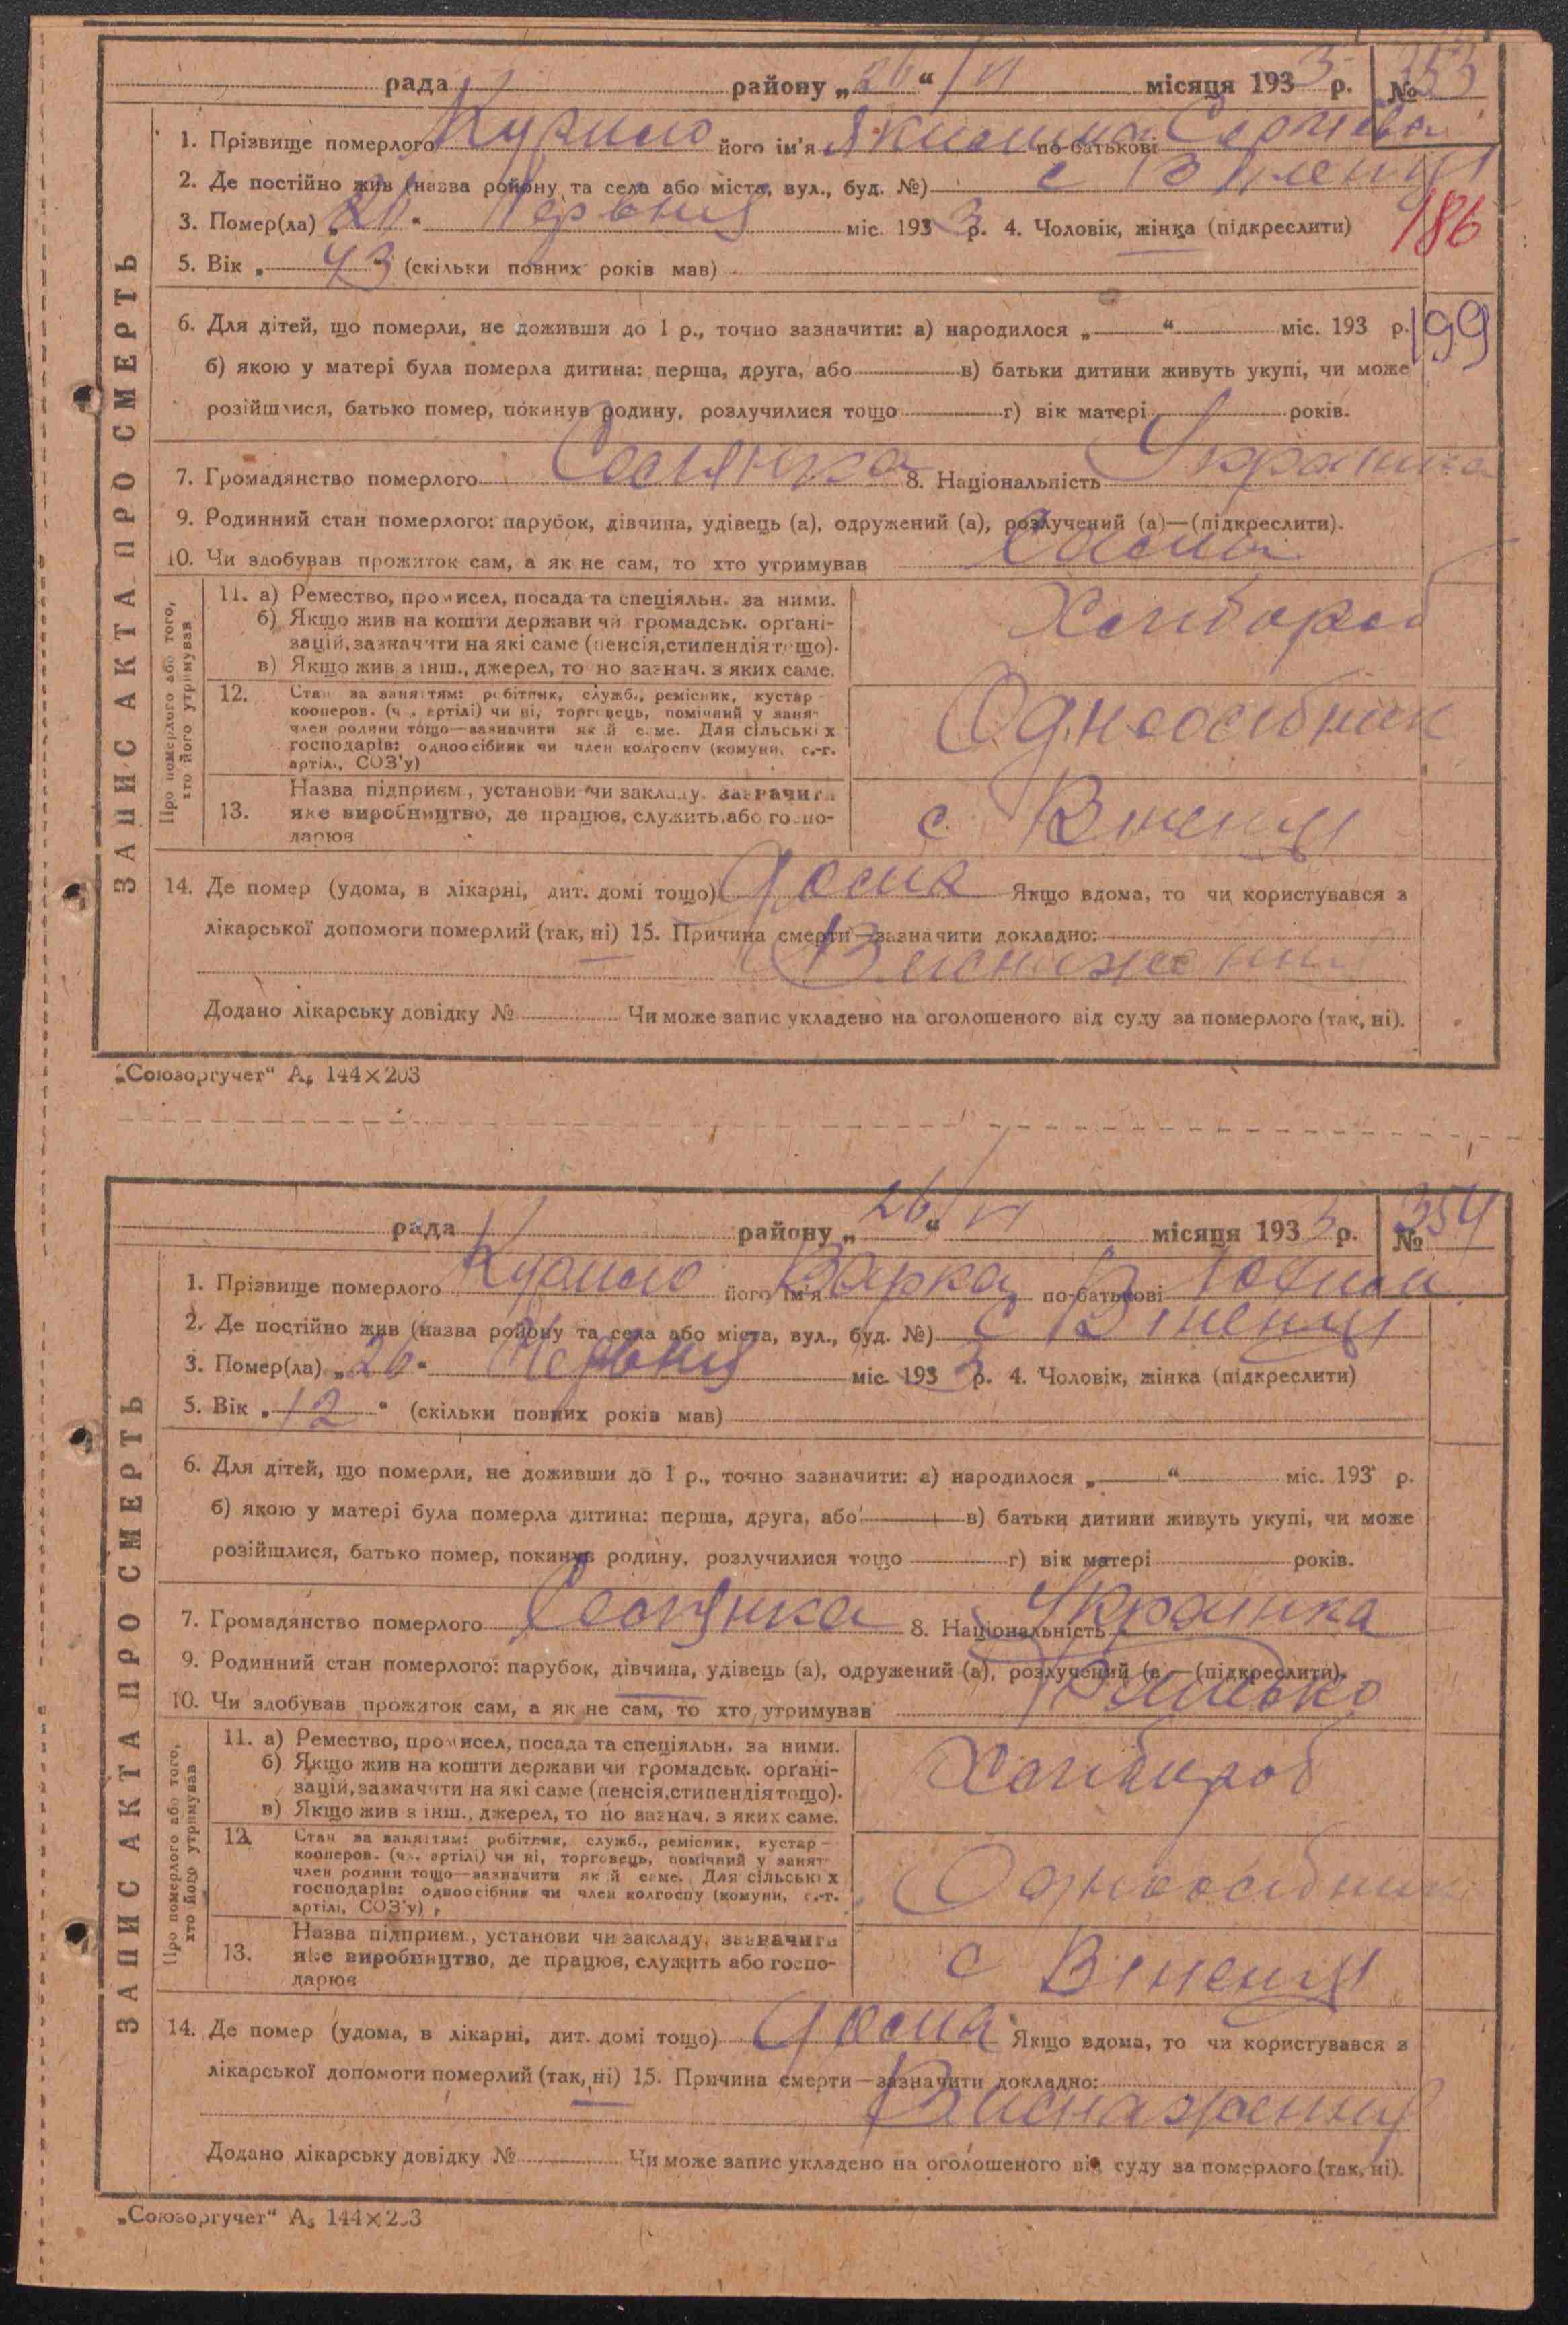 рада району „26“ VI місяця 1933 р. № 353
1. Прізвище померлого Курило його ім'я Якилина по-батькові
2. Де постійно жив (назва району та села або міста, вул., буд. №) с
186
3. Помер(ла) „ “ Червня міс. 1933 р. 4. Чоловік, жінка (підкреслити)
5. Вік „ 43 (скільки повних років мав)
6. Для дітей, що померли, не доживши до 1 р., точно зазначити: а) народилося „ “ міс. 193 р.
199
б) якою у матері була померла дитина: перша, друга, або в) батьки дитини живуть укупі, чи може
розійшлися, батько помер, покинув родину, розлучилися тощо г) вік матері років.
7. Громадянство померлого Селянка 8. Національність Українка
9. Родинний стан померлого: парубок, дівчина, удівець (а), одружений (а), розлучений (а)—(підкреслити).
10. Чи здобував прожиток сам, а як не сам, то хто утримував Сама
ЗАПИС АКТА ПРО СМЕРТЬ
Про померлого або того, хто його утримував
11. а) Ремество, промисел, посада та спеціяльн. за ними.
б) Якщо жив на кошти держави чи громадськ. органі-
зацій, зазначити на які саме (пенсія, стипендія тощо).
в) Якщо жив з інш., джерел, то но зазнач. з яких саме.
Хлибороб
12. Стан за заняттям: робітник, служб., ремісник, кустар-
кооперов. (чл. артілі) чи ні, торговець, помічний у занят-
член родини тощо—зазначити який саме. Для сільських
господарів: одноосібник чи член колгоспу (комуни, с.-г.
артілі, СОЗ'у)
Одноосібник
13. Назва підприєм., установи чи закладу, зазначити
яке виробництво, де працює, служить або госпо-
дарює
с.
14. Де помер (удома, в лікарні, дит. домі тощо) Дома Якщо вдома, то чи користувався з
лікарської допомоги померлий (так, ні) 15. Причина смерти—зазначити докладно:
Виснаження
Додано лікарську довідку № Чи може запис укладено на оголошеного від суду за померлого (так, ні).
„Союзоргучет“ А₅ 144×203
рада району „26“ VI місяця 1933 р. № 354
1. Прізвище померлого Курило його ім'я Варка по-батькові
2. Де постійно жив (назва району та села або міста, вул., буд. №) с Віненці
3. Помер(ла) „26“ Червня міс. 1933 р. 4. Чоловік, жінка (підкреслити)
5. Вік „12“ (скільки повних років мав)
6. Для дітей, що померли, не доживши до 1 р., точно зазначити: а) народилося „ “ міс. 193 р.
б) якою у матері була померла дитина: перша, друга, або в) батьки дитини живуть укупі, чи може
розійшлися, батько помер, покинув родину, розлучилися тощо г) вік матері років.
7. Громадянство померлого Селянка 8. Національність Українка
9. Родинний стан померлого: парубок, дівчина, удівець (а), одружений (а), розлучений (а—(підкреслити).
10. Чи здобував прожиток сам, а як не сам, то хто утримував Батько
ЗАПИС АКТА ПРО СМЕРТЬ
Про померлого або того, хто його утримував
11. а) Ремество, промисел, посада та спеціяльн. за ними.
б) Якщо жив на кошти держави чи громадськ. органі-
зацій, зазначити на які саме (пенсія, стипендія тощо).
в) Якщо жив з інш., джерел, то но зазнач. з яких саме.
Хлибороб
12. Стан за заняттям: робітник, служб., ремісник, кустар-
кооперов. (чл. артілі) чи ні, торговець, помічний у занят-
член родини тощо—зазначити який саме. Для сільських
господарів: одноосібник чи член колгоспу (комуни, с.-г.
артілі, СОЗ'у)
Одноосібник
13. Назва підприєм., установи чи закладу, зазначити
яке виробництво, де працює, служить або госпо-
дарює
с Віненці
14. Де помер (удома, в лікарні, дит. домі тощо) Дома Якщо вдома, то чи користувався з
лікарської допомоги померлий (так, ні) 15. Причина смерти—зазначити докладно:
Виснаження
Додано лікарську довідку № Чи може запис укладено на оголошеного від суду за померлого (так, ні).
„Союзоргучет“ А₅ 144×203